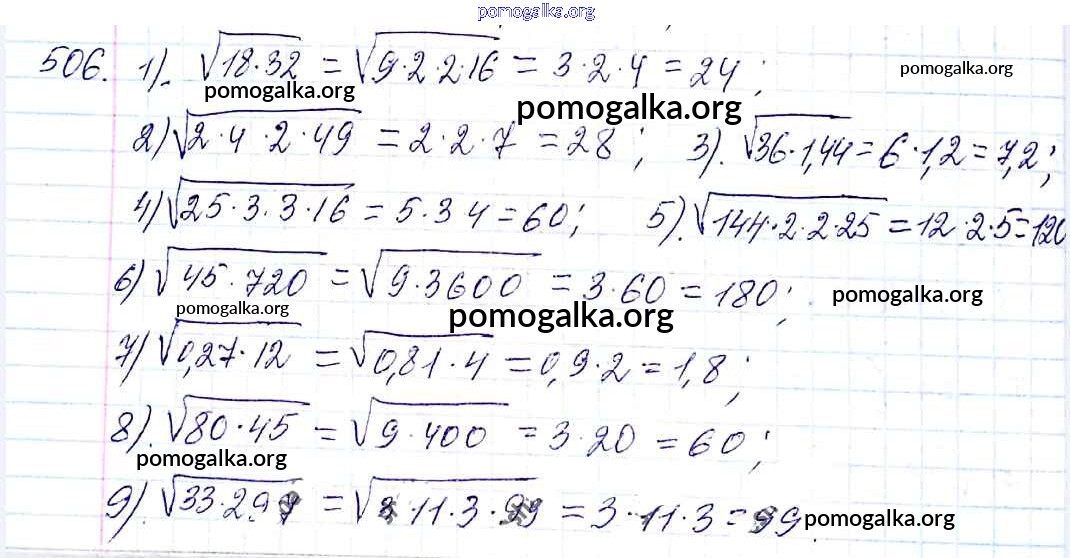 pomogalka.org
506. 1). √18·32 = √9·2·2·16 = 3·2·4 = 24;
pomogalka.org pomogalka.org pomogalka.org
2) √2·4·2·49 = 2·2·7 = 28; 3). √36·1,44 = 6·1,2 = 7,2;
4) √25·3·3·16 = 5·3 4 = 60; 5). √144·2·2·25 = 12·2·5 = 120
6) √45·720 = √9·3600 = 3·60 = 180; pomogalka.org
pomogalka.org pomogalka.org
7) √0,27·12 = √0,81·4 = 0,9·2 = 1,8;
8). √80·45 = √9·400 = 3·20 = 60;
pomogalka.org
9). √33·297 = √3·11·3·99 = 3·11·3 = 99 pomogalka.org